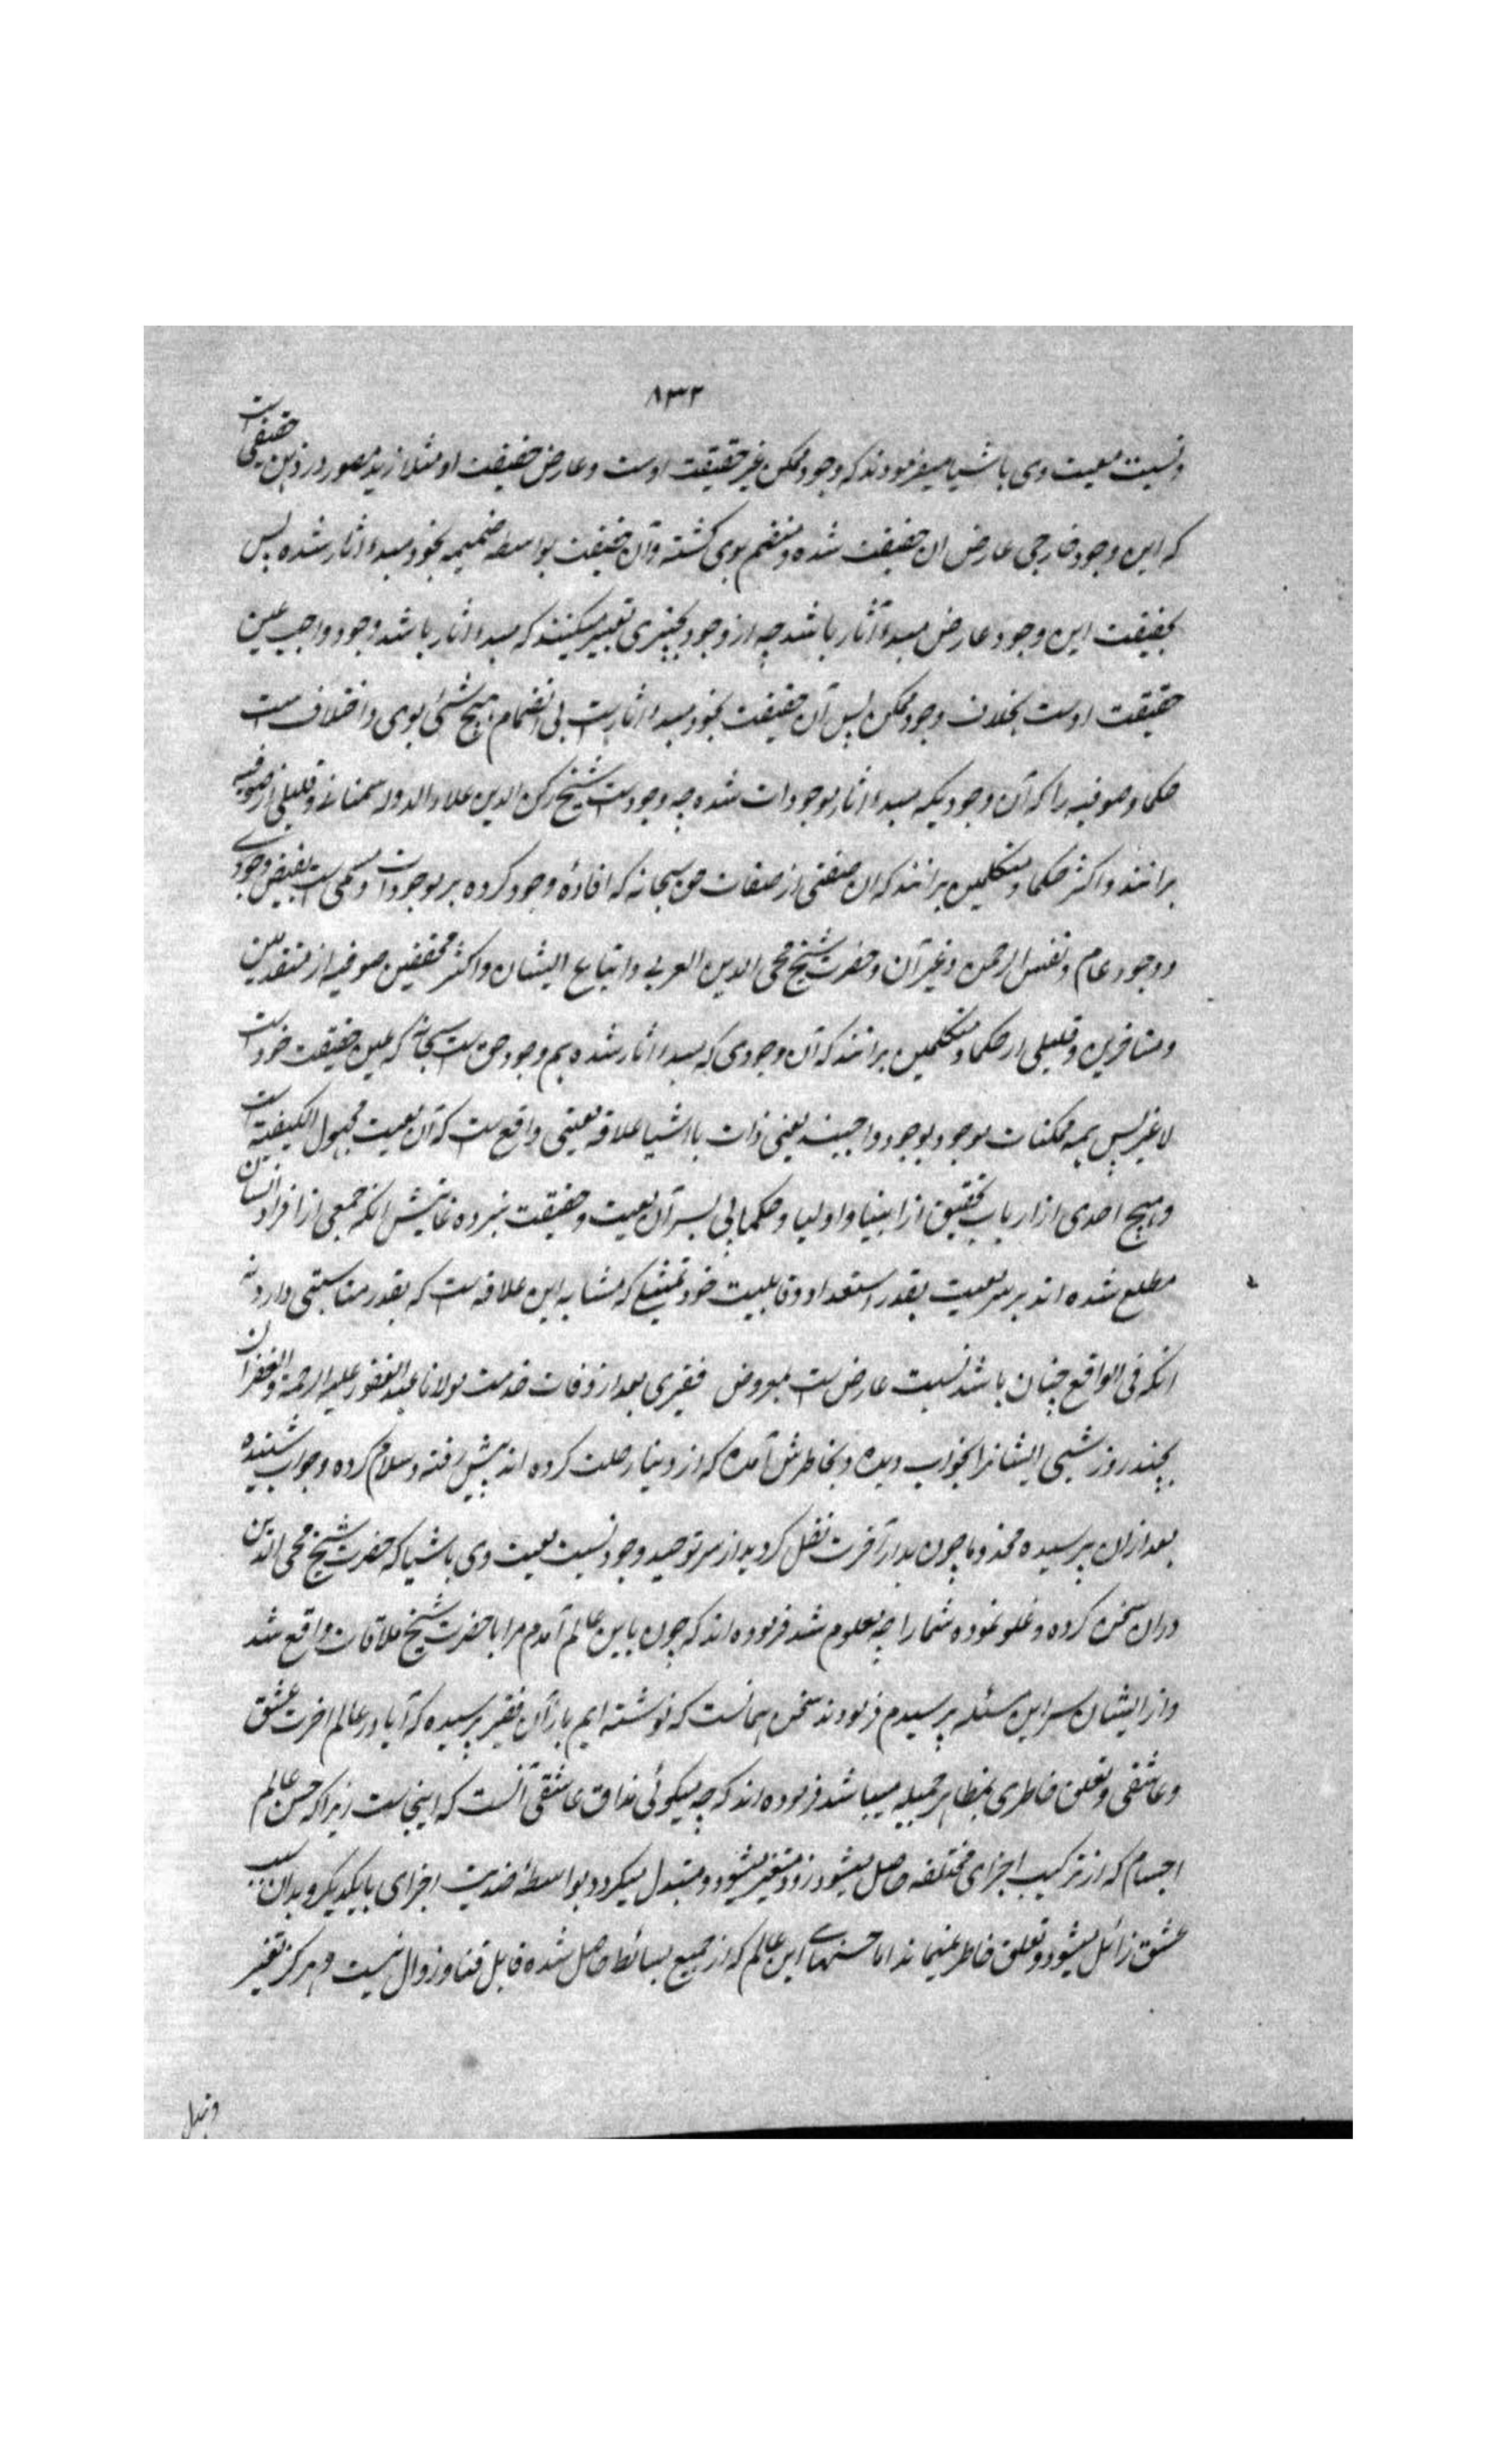 ٨٣٢
ونسبت معیت وی باشیا میفرمودند که وجود ممکن غیر حقیقت اوست و عارض حقیقت او مثلا زید متصور در ذهن حقیقی است
که این وجود خارجی عارض ان حقیقت شده و منضم بوی کشته و آن حقیقت بواسطه ضمیمه بخود مبدء اثار شده پس
بحقیقت این وجود عارض مبدء آثار باشد چه از وجود بچیزی تعبیر میکنند که مبدء اثار باشد وجود واجب عین
حقیقت اوست بخلاف وجود ممکن پس آن حقیقت بخود مبدء اثارست بی انضمام هیچ شئی بوی و اختلاف است
حکما و صوفیه را که آن وجودیکه مبدء اثار موجودات شده چه وجودست شیخ رکن الدین علاء الدوله سمنانے و قلیلی از صوفیه
برانند و اکثر حکما و متکلمین برانند که ان صفتی از صفات حق سبحانه که افاده وجود کرده بر موجودات و مسمی است بفیض وجودے
و وجود عام و نفس الرحمن و غیر آن و حضرت شیخ محی الدین العربے و اتباع ایشان و اکثر محققین صوفیه از متقدمین
و متاخرین و قلیلی از حکما و متکلمین برانند که آن وجودی که مبدء اثار شده هم وجود حق ست سبحانه که عین حقیقت خودست
لا غیر پس همه ممکنات موجود بوجود واجبند یعنی ذات با اشیا علاقه معیتی واقع ست که آن معیت مجهول الکیفیة است
و هیچ احدی از ارباب تحقیق از انبیا و اولیا و حکما پی بسر آن معیت و حقیقت نبرده غایتش انکه جمعی از افراد انسان
مطلع شده اند بر سر معیت بقدر استعداد و قابلیت خود تمثیلے که مشابه این علاقه ست که بقدر مناسبتی دارد نه
انکه فی الواقع چنان باشد نسبت عارض ست بمعروض فقیری بعد از وفات خدمت مولانا عبد الغفور علیه الرحمة و الغفران
بچند روز شبی ایشانرا بخواب دیده و بخاطرش آمده که از دنیا رحلت کرده اند پیش رفته و سلام کرده و جواب شنیده
بعد ازان پرسیده مخدوما چون بدار آخرت نقل کردید از سر توحید وجود و نسبت معیت وی باشیا که حضرت شیخ محی الدین
دران سخن کرده و غلو نموده شما را چه معلوم شد فرموده اند که چون باین عالم آمدم مرا با حضرت شیخ ملاقات واقع شد
و از ایشان سر این مسئله پرسیدم فرمودند سخن همانست که نوشته ایم باز آن فقیر پرسیده که آیا در عالم اخرت عشق
و عاشقی و تعلق خاطری بمظاهر جمیله میباشد فرموده اند که چه میکوئی مذاق عاشقی آنست که اینجاست زیرا که حسن عالم
اجسام که از ترکیب اجزای مختلفه حاصل میشود زود متغیر میشود و متبدل میکردد بواسطه ضدیت اجزای بایکدیکر و بدان سبب
عشق زائل میشود و تعلق خاطر نمیماند اما حسنهاے این عالم که از جمیع بسائط حاصل شده قابل فنا و زوال نیست و هرکز تغیر
و تبدل